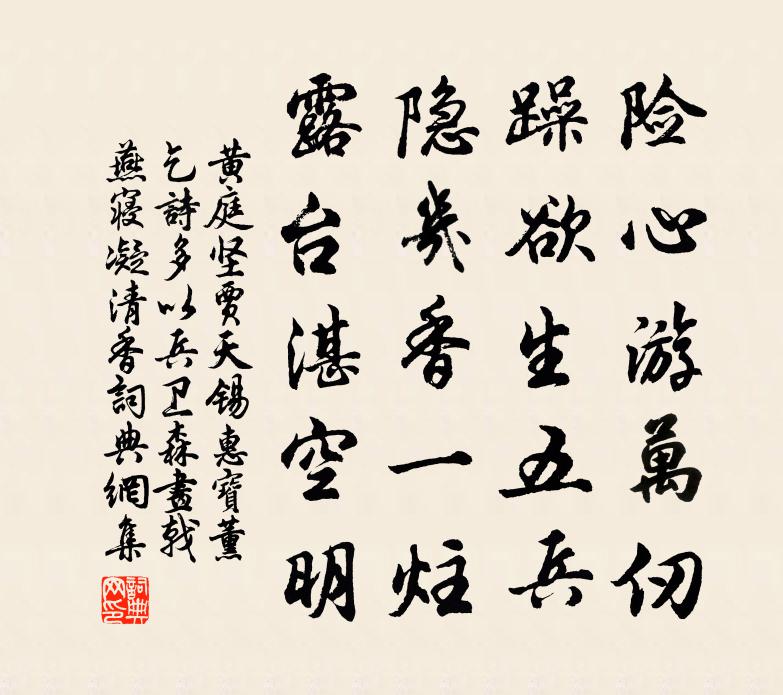 险心游萬仞
躁欲生五兵
隐幾香一炷
露台湛空明
黄庭坚贾天锡惠寶薰
乞詩多以兵卫森畫戟
燕寝凝清香詞典網集